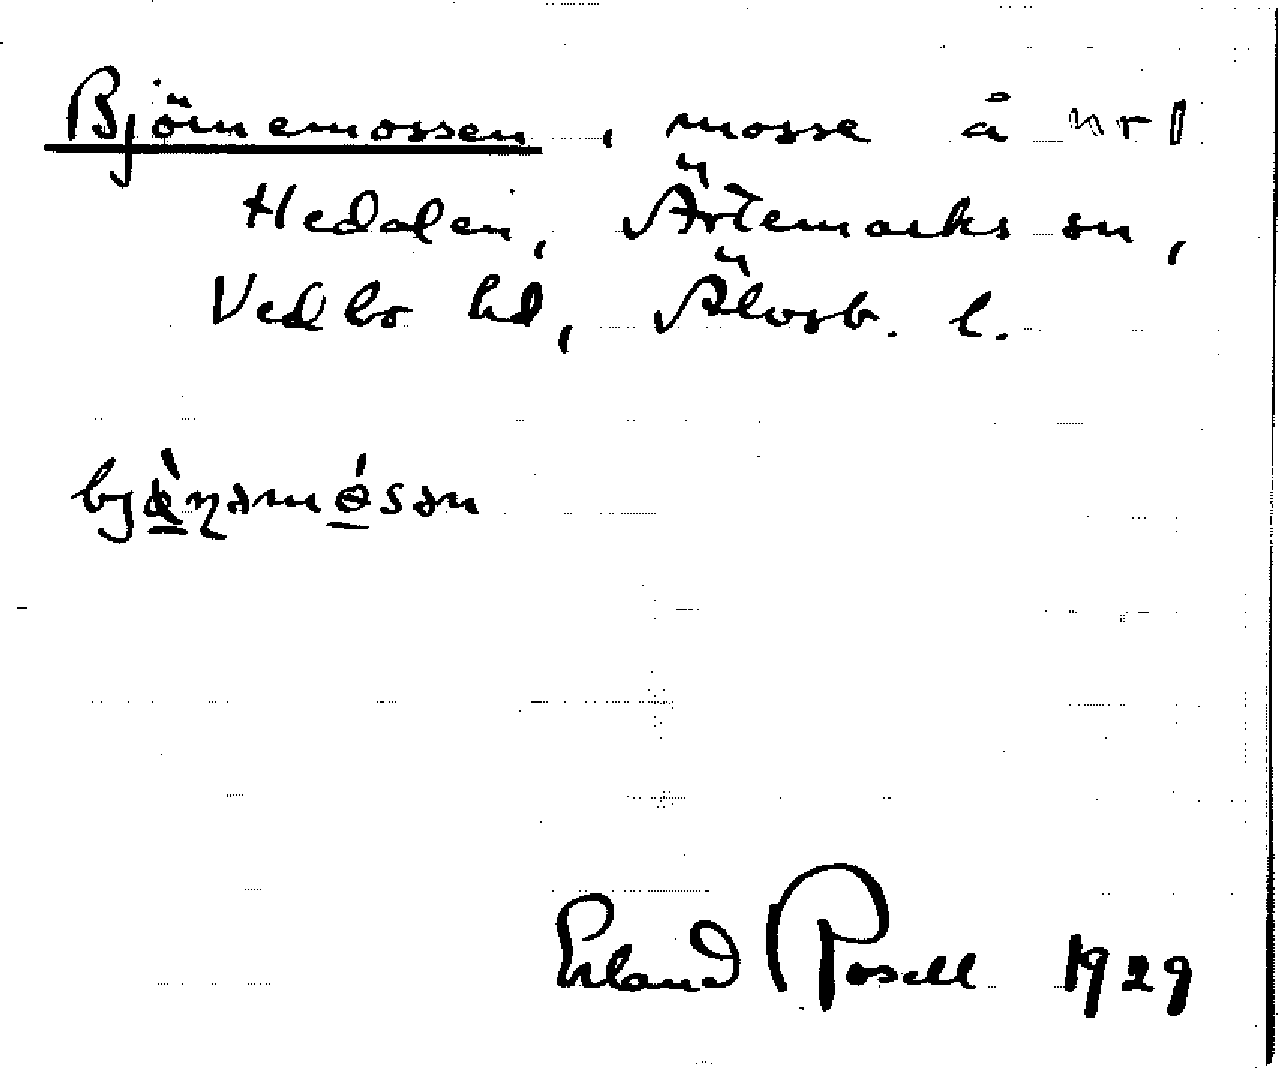 Björnemossen, mosse å nr 1
Hedalen, Ärtemarks sn,
Vedbo hd, Älvsb. l.
Erland Rosell 1929